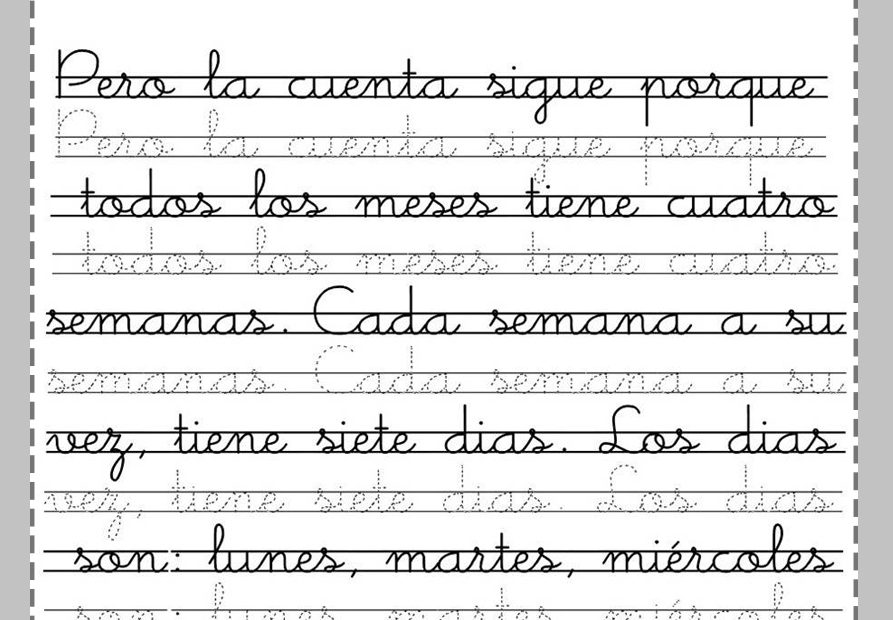 Pero la cuenta sigue porque
Pero la cuenta sigue porque
todos los meses tiene cuatro
todos los meses tiene cuatro
semanas. Cada semana a su
semanas. Cada semana a su
vez, tiene siete dias. Los dias
vez, tiene siete dias. Los dias
son: lunes, martes, miércoles
son: lunes, martes, miércoles